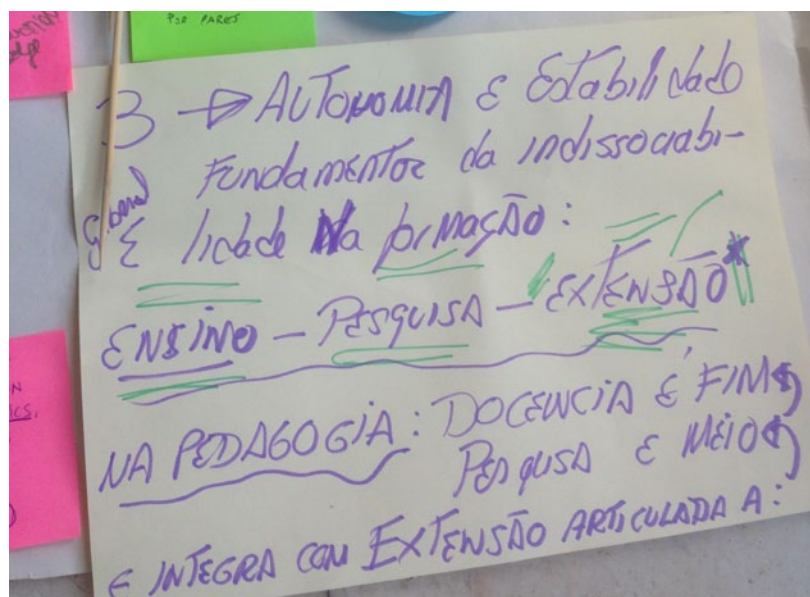 POR PARES
3 → AUTONOMIA E Estabilidade
Fundamentos da indissociabi-
E lidade Na formação:
ENSINO - PESQUISA - EXTENSÃO*
NA PEDAGOGIA: DOCENCIA É FIM
PESQUISA E MEIO
E INTEGRA COM EXTENSÃO ARTICULADA A: